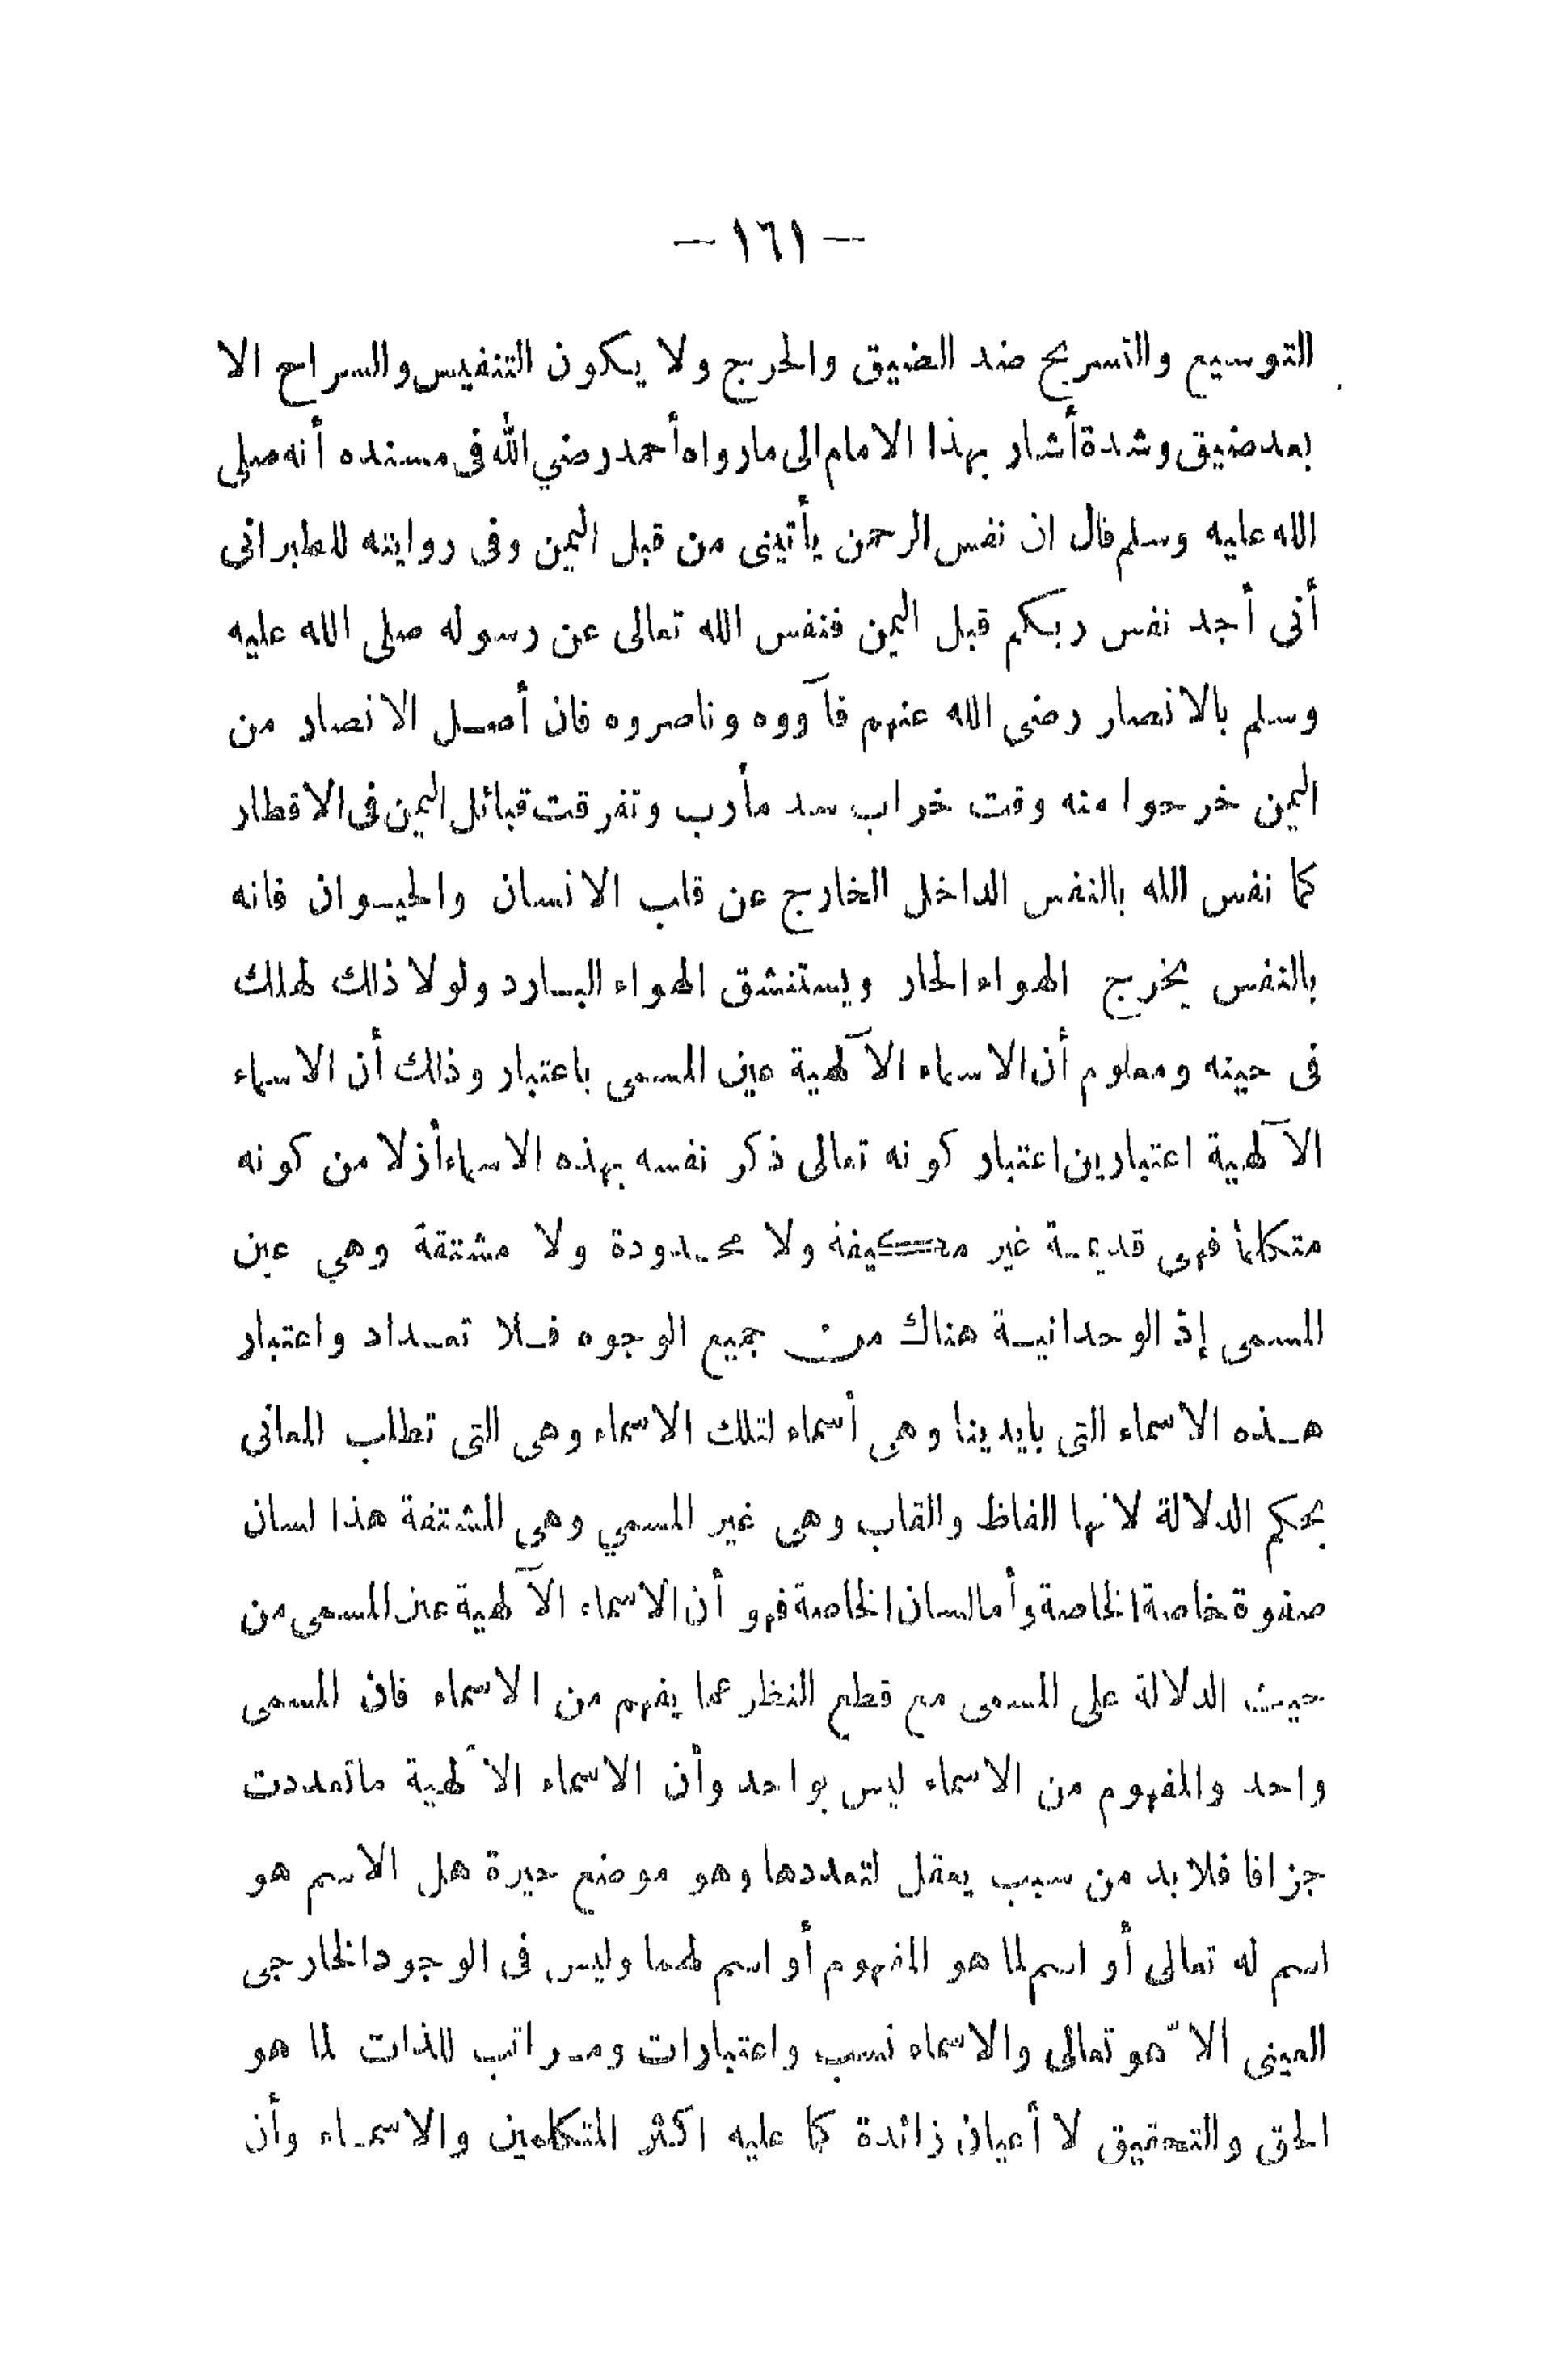 — ١٦١ —
التوسيع والتسريح ضد الضيق والحرج ولا يكون التنفيس والسراح الا
بعد ضيق وشدة أشار بهذا الامام الى ما رواه أحمد رضي الله فى مسنده أنه صلى
الله عليه وسلم قال ان نفس الرحمن يأتينى من قبل اليمن وفى روايته للطبرانى
أنى أجد نفس ربكم قبل اليمن فنفس الله تعالى عن رسوله صلى الله عليه
وسلم بالانصار رضى الله عنهم فآووه وناصروه فان أصل الانصار من
اليمن خرجوا منه وقت خراب سد مأرب وتفرقت قبائل اليمن فى الاقطار
كما نفس الله بالنفس الداخل الخارج عن قلب الانسان والحيوان فانه
بالنفس يخرج الهواء الحار ويستنشق الهواء البارد ولولا ذلك لهلك
فى حينه ومعلوم أن الاسماء الآلهية عين المسمى باعتبار وذلك أن الاسماء
الآلهية اعتبارين اعتبار كونه تعالى ذكر نفسه بهذه الاسماء أزلا من كونه
متكلما فهى قديمة غير مكيفة ولا محدودة ولا مشتقة وهي عين
المسمى إذ الوحدانية هناك من جميع الوجوه فلا تعداد واعتبار
هذه الاسماء التى بايدينا وهى أسماء لتلك الاسماء وهى التى تطلب المعانى
بحكم الدلالة لانها الفاظ والقاب وهى غير المسمي وهى المشتقة هذا لسان
صفوة خاصة الخاصة وأما لسان الخاصة فهو أن الاسماء الآلهية عين المسمى من
حيث الدلالة على المسمى مع قطع النظر عما يفهم من الاسماء فان المسمى
واحد والمفهوم من الاسماء ليس بواحد وأن الاسماء الآلهية ما تعددت
جزافا فلا بد من سبب يعقل لتعددها وهو موضع حيرة هل الاسم هو
اسم له تعالى أو اسم لما هو المفهوم أو اسم لهما وليس فى الوجود الخارجى
العينى الا هو تعالى والاسماء نسب واعتبارات ومراتب للذات لما هو
الحق والتحقيق لا أعيان زائدة كما عليه اكثر المتكلمين والاسماء وأن